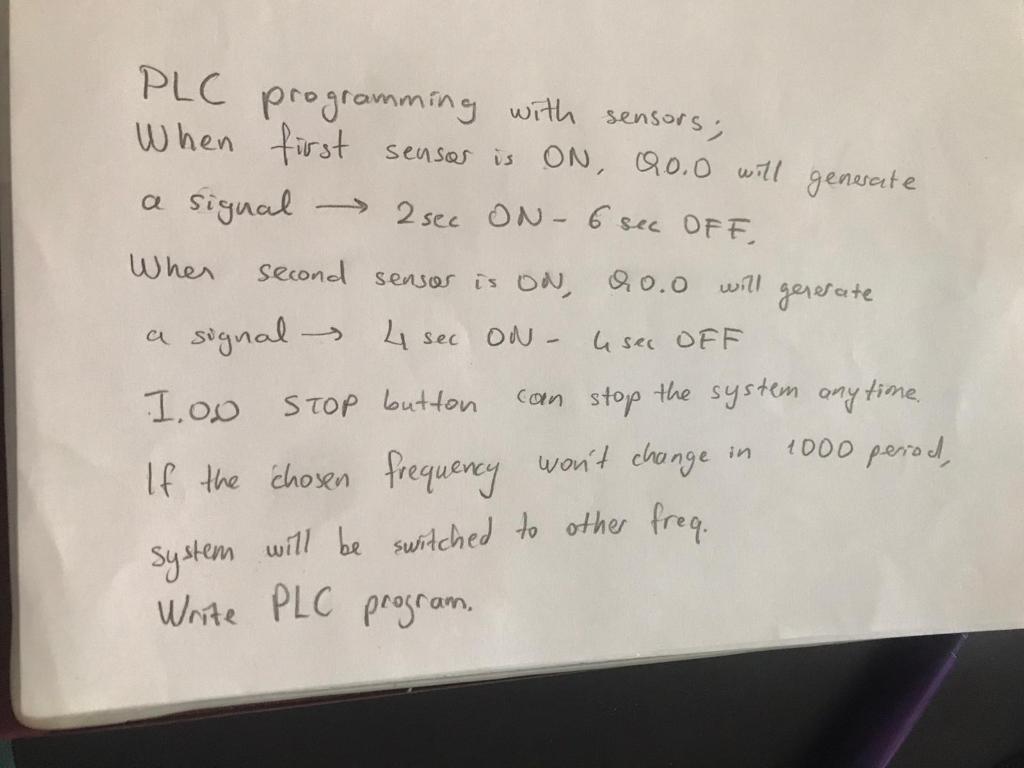 PLC programming with sensors;
When first sensor is ON, Q0.0 will generate
a signal → 2 sec ON - 6 sec OFF.
When second sensor is ON, Q0.0 will generate
a signal → 4 sec ON - 4 sec OFF
I.00 STOP button can stop the system any time.
If the chosen frequency won't change in 1000 period,
system will be switched to other freq.
Write PLC program.